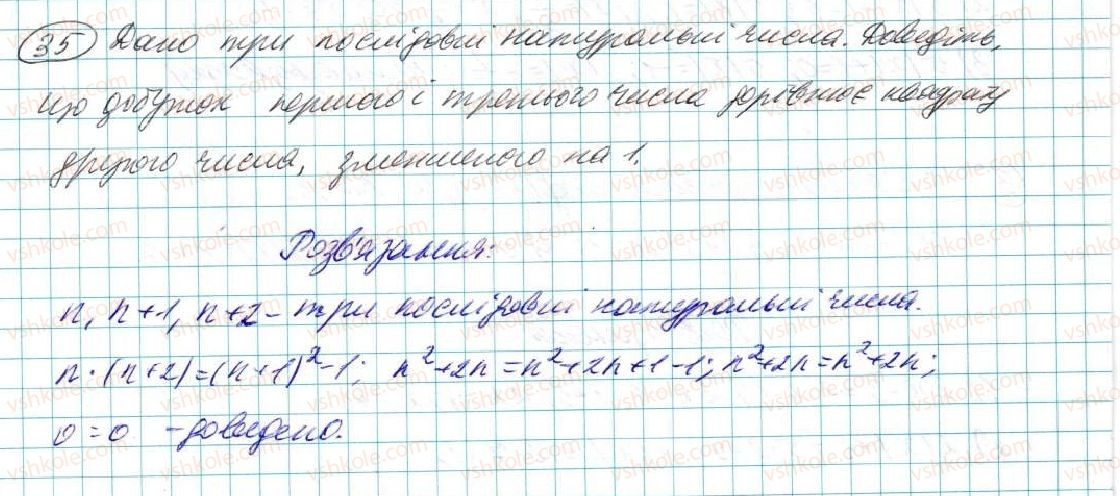 35 Дано три послідовні натуральні числа. Доведіть,
що добуток першого і третього числа дорівнює квадрату
другого числа, зменшеного на 1.
Розв'язання:
n, n+1, n+2 – три послідовні натуральні числа.
n·(n+2)=(n+1)²-1; n²+2n=n²+2n+1-1; n²+2n=n²+2n;
0=0 - доведено.